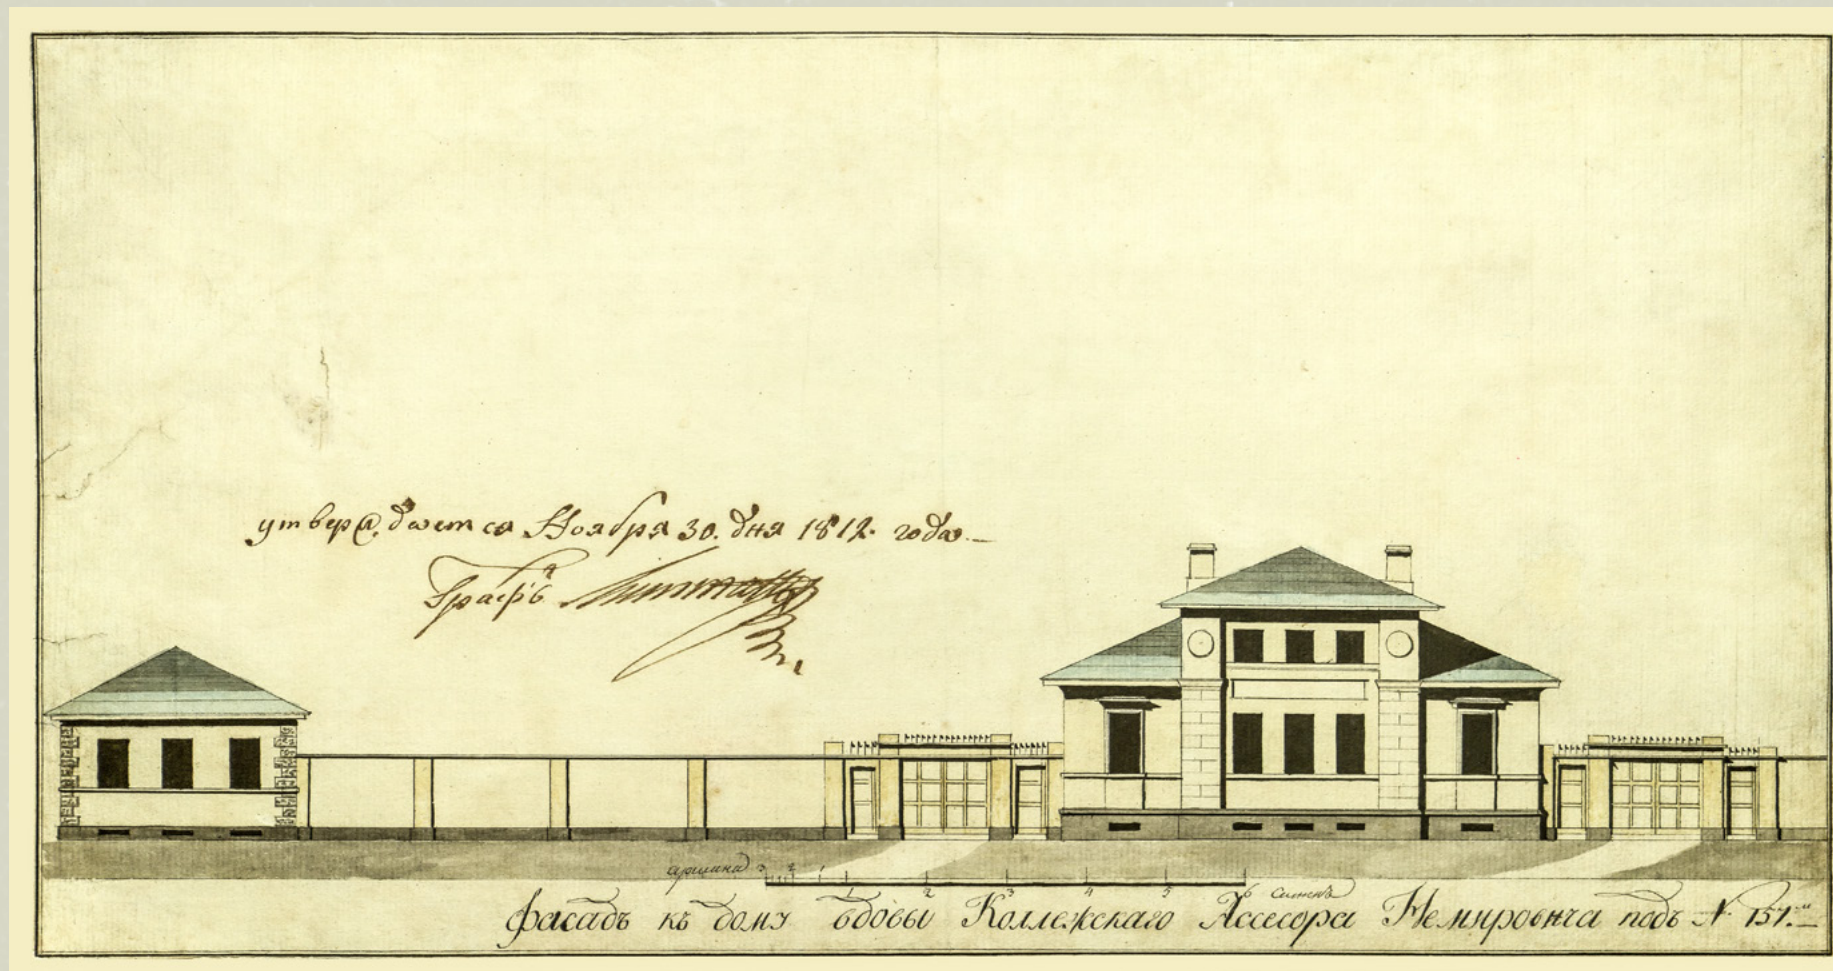 утверждается Ноября 30. дня 1812. года.—
Графъ
аршинъ 3 2 1 1 2 3 4 5 6 сажень
Фасадъ къ дому вдовы Коллежскаго Ассесора Немировича подъ №. 151.—